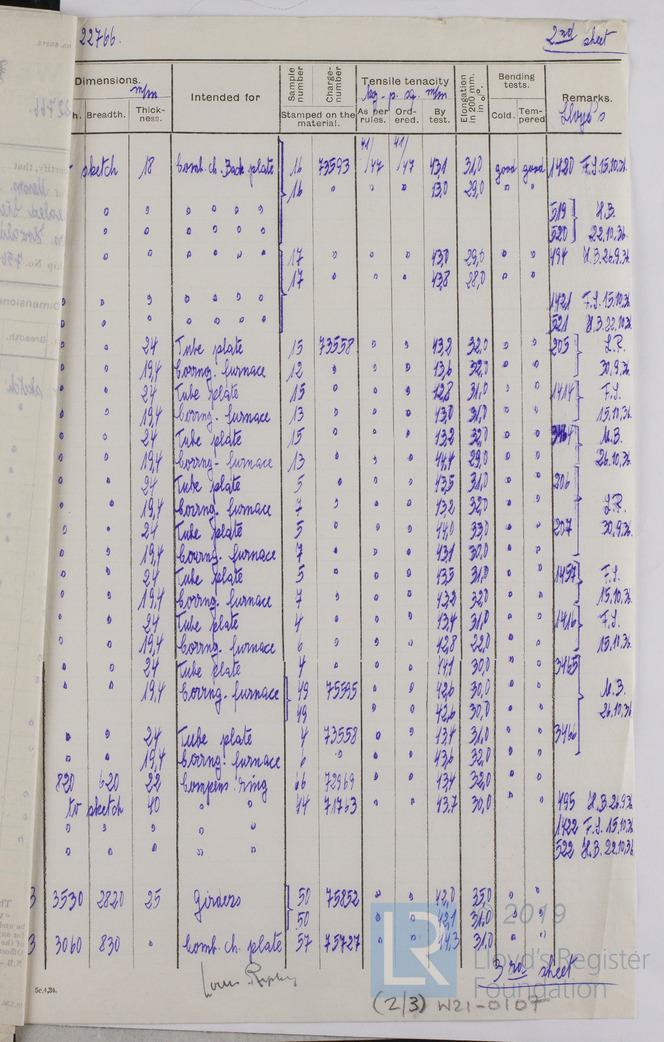 22766.
2nd sheet
Dimensions. m/m
Breadth. Thick-ness.
Intended for
Sample number
Charge-number
Stamped on the material.
Tensile tenacity
kg. p. sq. m/m
As per rules. Ordered. By test.
Elongation in 200 mm. in %.
Bending tests.
Cold. Tempered
Remarks.
Lloyd's
41/ 41/
sketch 18 Comb. ch. Back plate 16 73593 /47 /47 43,1 31,0 good good 1420 F.S. 15.10.36.
16 " " " 43,0 29,0 " "
" " " " " " " 519 H.B.
" " " " " " " 520 22.10.36.
" " " " " " " 17 " " " 43,0 29,0 " " 494 H.B. 26.9.36.
17 " " " 43,8 28,0 " "
" " " " " " " 1421 F.S. 15.10.36
" " " " " " " 521 H.B. 22.10.36
" " 24 Tube plate 15 73558 " " 43,2 32,0 " " 205 L.R.
" " 19,4 Corrng. furnace 12 " " " 43,6 32,0 " " 30.9.36.
" " 24 Tube plate 15 " " " 42,8 31,0 " " 1414 F.S.
" " 19,4 Corrng. furnace 13 " " " 43,0 31,0 " " 15.10.36.
" " 24 Tube plate 15 " " " 43,2 32,0 " " 3464 M.B.
" " 19,4 Corrng. furnace 13 " " " 44,4 29,0 " " 26.10.36.
" " 24 Tube plate 5 " " " 43,5 31,0 " " 206
" " 19,4 Corrng. furnace 7 " " " 43,2 32,0 " " L.R.
" " 24 Tube plate 5 " " " 44,0 33,0 " " 207 30.9.36.
" " 19,4 Corrng. furnace 7 " " " 43,1 30,0 " "
" " 24 Tube plate 5 " " " 43,5 31,0 " " F.S.
" " 19,4 Corrng. furnace 7 " " " 43,2 32,0 " " 15.10.36.
" " 24 Tube plate 4 " " " 43,4 31,0 " " 1416 F.S.
" " 19,4 Corrng. furnace 6 " " " 42,8 " " 15.10.36.
" " 24 Tube plate 4 " " " 44,1 30,0 " " 3465
" " 19,4 Corrng. furnace 49 75595 " " 42,6 30,0 " " M.B.
49 " " 42,6 30,0 " " 26.10.36
" " 24 Tube plate 4 73558 " " 43,4 31,0 " " 3466
" " 19,4 Corrng. furnace 6 " " " 43,6 32,0 " "
820 620 22 Compens. ring 66 72969 " " 43,4 32,0 " "
to sketch 40 " " 44 71763 " " 43,7 30,0 " " 495 H.B. 26.9.36
" " " " " 1422 F.S. 15.10.36
" " " " " 522 H.B. 22.10.36
3 3530 2820 25 Girders 50 75852 " " 42,0 35,0 " "
50 " " 42,1 31,0 " "
3 3060 830 " Comb. ch. plate 57 75727 " " 44,3 31,0 " "
3rd sheet
5c.4,36.
(2/3) W21-0107
LR
2019
Lloyd's Register
Foundation